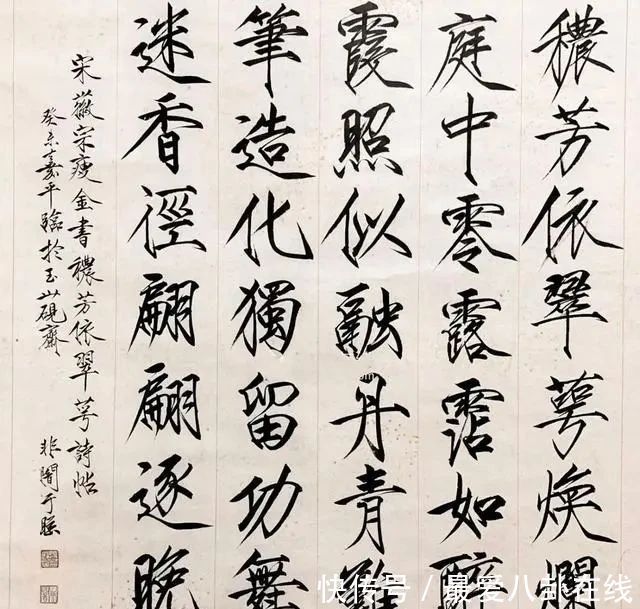 穠芳依翠萼煥爛
庭中零露霑如醉
霞照似融丹青難
筆造化獨留功舞
迷香徑翩翩逐晚
宋徽宗瘦金書穠芳依翠萼詩帖
癸未嘉平臨於玉山硯齋 非闇于照
快传号 / 最爱八卦在线